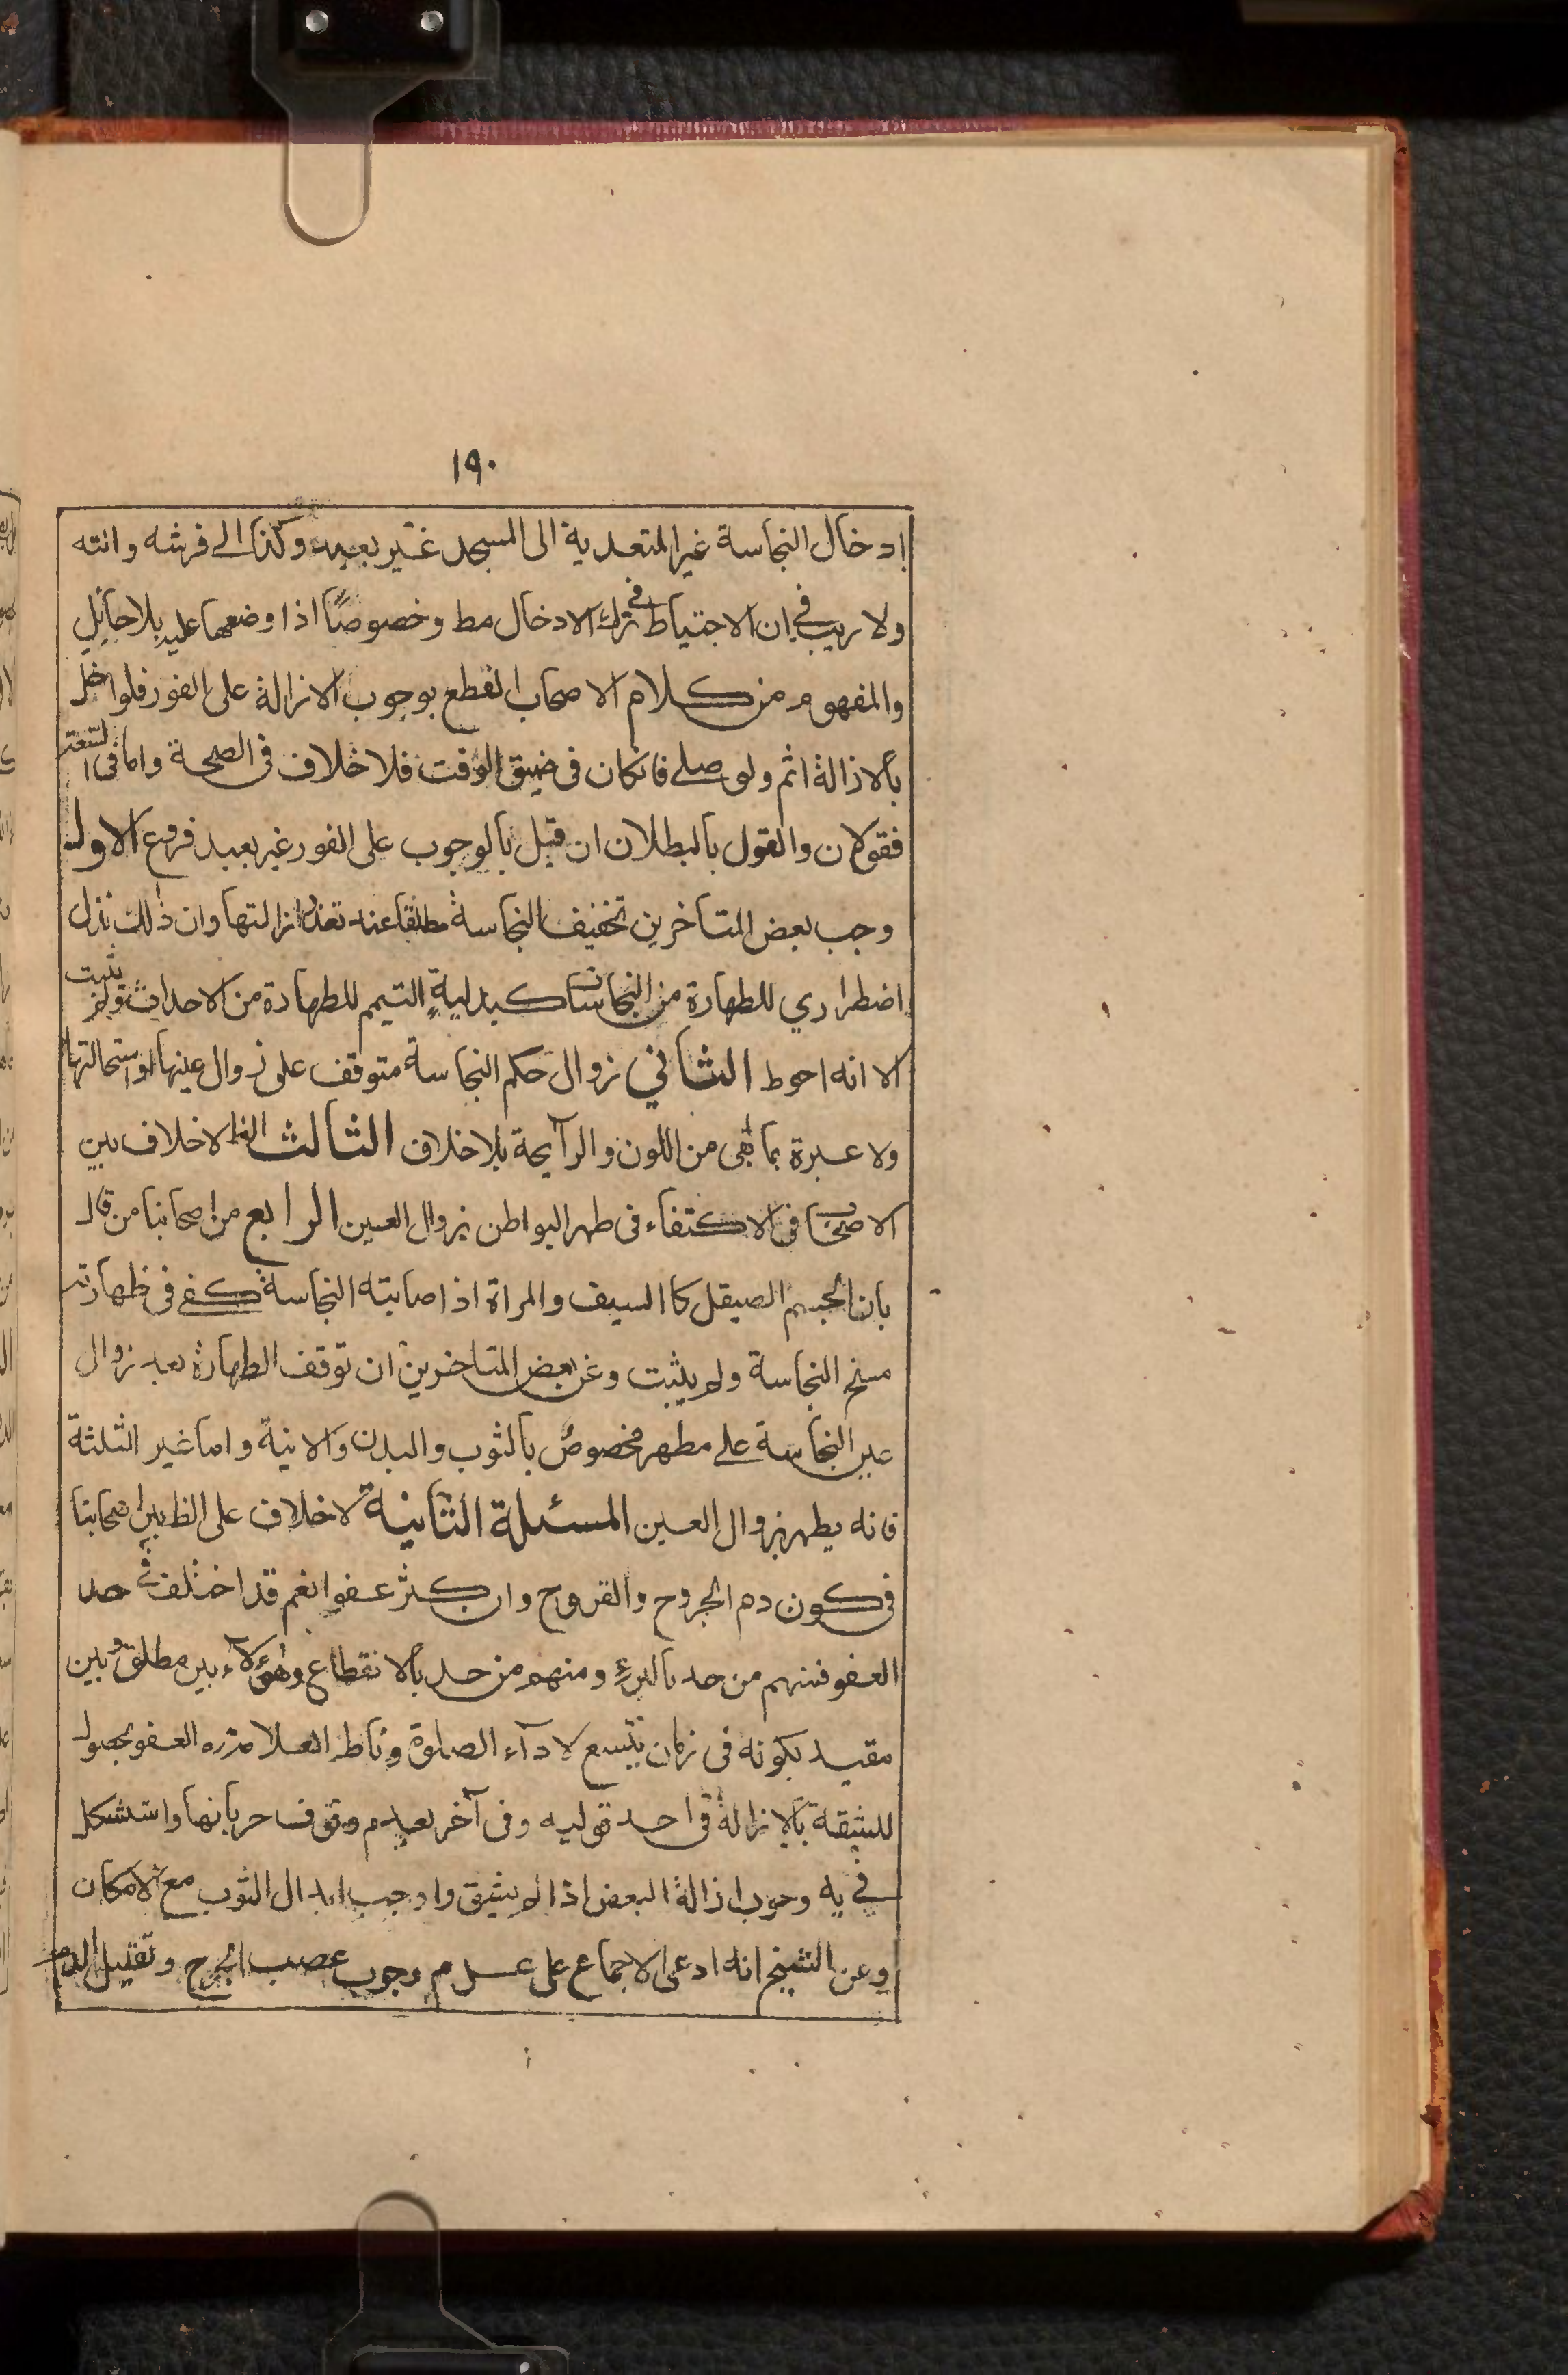 ١٩٠
إدخال النجاسة غير المتعدية الى المسجد غير بعيد وكذا الى فرشه وانته
ولا ريب في ان الاحتياط في ترك الادخال مط وخصوصًا اذا وضعها عليه بلا حائل
والمفهوم من كلام الاصحاب القطع بوجوب الازالة على الفور فلو اخل
بالازالة اثم ولو صلى فان كان في ضيق الوقت فلا خلاف في الصحة واما في السعة
فقولان والقول بالبطلان ان قيل بالوجوب على الفور غير بعيد فروع الاول
وجب بعض المتاخرين تخفيف النجاسة مطلقا عند تعذر ازالتها وان ذلك بدل
اضطراري للطهارة من النجاسات كبدلية التيمم للطهارة من الاحداث ولم يثبت
الا انه احوط الثاني زوال حكم النجاسة متوقف على زوال عينها او استحالتها
ولا عبرة بما بقى من اللون والرآيحة بلا خلاف الثالث الظ لا خلاف بين
الاصحاب فى الاكتفاء فى طهر البواطن بزوال العين الرابع من اصحابنا من قال
بان الجسم الصيقل كا السيف والمراة اذا صابته النجاسة كفى فى طهارته
مسح النجاسة ولم يثبت وعن بعض المتاخرين ان توقف الطهارة بعد زوال
عين النجاسة على مطهر مخصوص بالثوب والبدن والانية واما غير الثلثة
فانه يطهر بزوال العين المسئلة الثانية لا خلاف على الظ بين اصحابنا
فى كون دم الجروح والقروح وان كثر عفوا نعم قد اختلف فى حد
العفو فمنهم من حد بالبرء ومنهم من حد بالانقطاع وهؤلآء بين مطلق وبين
مقيد بكونه فى زمان يتسع لادآء الصلوة وناط العلامة ره العفو بحصول
للشقة بالازالة فى احد قوليه وفى آخر بعدم وقوف جريانها واستشكل
في يه وجوب ازالة البعض اذا لم يشق واوجب ابدال الثوب مع الامكان
وعن الشيخ انه ادعى الاجماع على عدم وجوب عصب الجرح وتقليل الدم